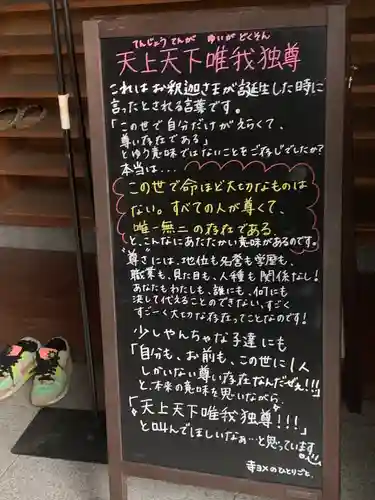 てんじょう てんが ゆいが どくそん
天上天下唯我独尊
これは お釈迦さまが誕生した時に
言ったとされる言葉です。
「この世で自分だけがえらくて、
尊い存在である」
とゆう意味ではないことをご存じでしたか?
本当は…
この世で命ほど大切なものは
ない。すべての人が尊くて、
唯一無二の存在である、
と、こんなにあたたかい意味があるのです。
"尊さ"には、地位も名誉も学歴も、
職業も、見た目も、人種も関係なし!
あなたもわたしも、誰にも、何にも
決して代えることのできない、すごく
すごーく大切な存在ってことなのです!
少しやんちゃな子達にも
「自分も、お前も、この世に1人
しかいない尊い存在なんだぜぇ!!!」
と、本来の意味を思いながら、
「"天上天下唯我独尊"!!!」
と叫んでほしいなぁ…と思っています
寺ヨメのひとりごと。